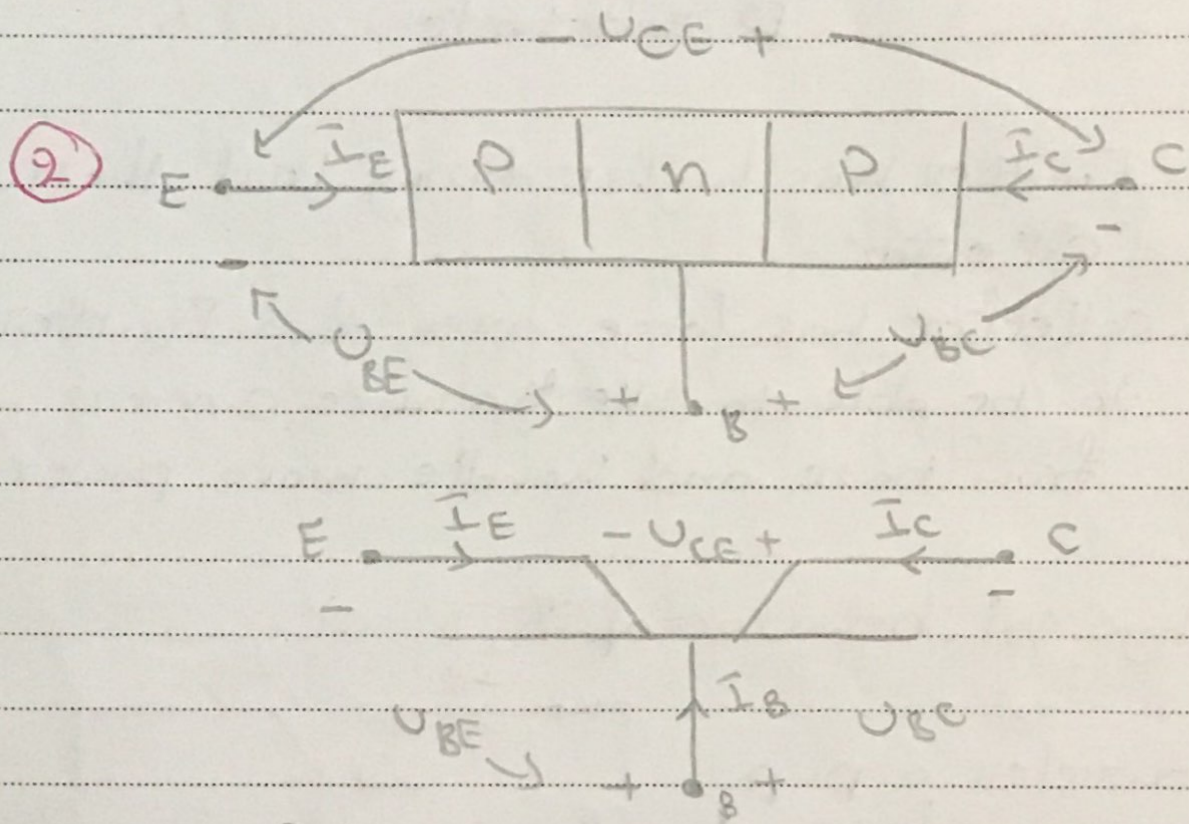 - U_CE +
2
E I_E P n P I_C C
- -
U_BE U_BC
+ B +
E I_E - U_CE + I_C C
- -
I_B
U_BE U_BC
+ B +